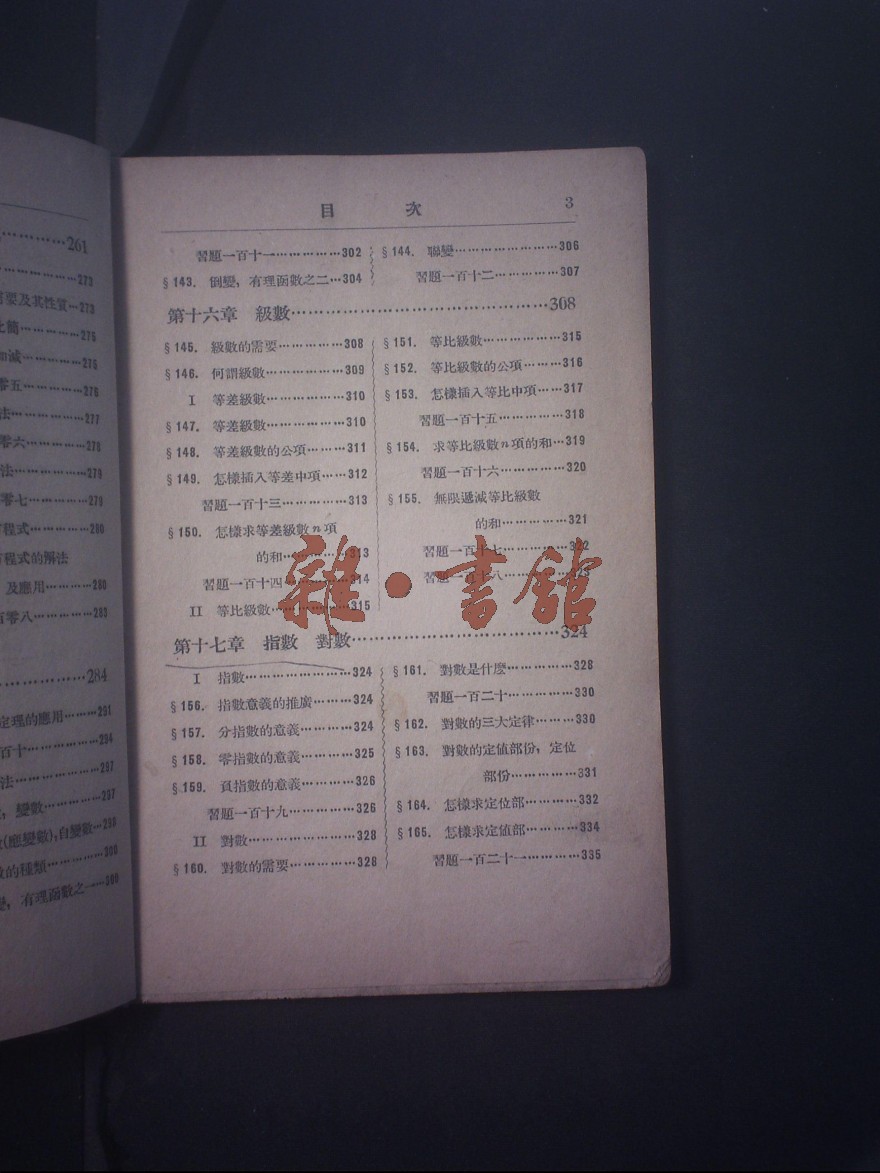 261
273
要及其性質…273
275
加減…275
零五…276
法…277
零六…278
法…279
零七…279
方程式…280
方程式的解法
及應用…280
百零八…283
284
定理的應用…291
百十…294
法…297
變數…297
(應變數),自變數…299
數的種類…300
變,有理函數之一…300
目 次 3
習題一百十一…302
§143. 倒變,有理函數之二…304
§144. 聯變…306
習題一百十二…307
第十六章 級數…308
§145. 級數的需要…308
§146. 何謂級數…309
I 等差級數…310
§147. 等差級數…310
§148. 等差級數的公項…311
§149. 怎樣插入等差中項…312
習題一百十三…313
§150. 怎樣求等差級數n項
的和…313
習題一百十四…314
II 等比級數…315
§151. 等比級數…315
§152. 等比級數的公項…316
§153. 怎樣插入等比中項…317
習題一百十五…318
§154. 求等比級數n項的和…319
習題一百十六…320
§155. 無限遞減等比級數
的和…321
習題一百十七…322
習題一百十八…323
第十七章 指數 對數…324
I 指數…324
§156. 指數意義的推廣…324
§157. 分指數的意義…324
§158. 零指數的意義…325
§159. 負指數的意義…326
習題一百十九…326
II 對數…328
§160. 對數的需要…328
§161. 對數是什麼…328
習題一百二十…330
§162. 對數的三大定律…330
§163. 對數的定值部份,定位
部份…331
§164. 怎樣求定位部…332
§165. 怎樣求定值部…334
習題一百二十一…335
雜·書館